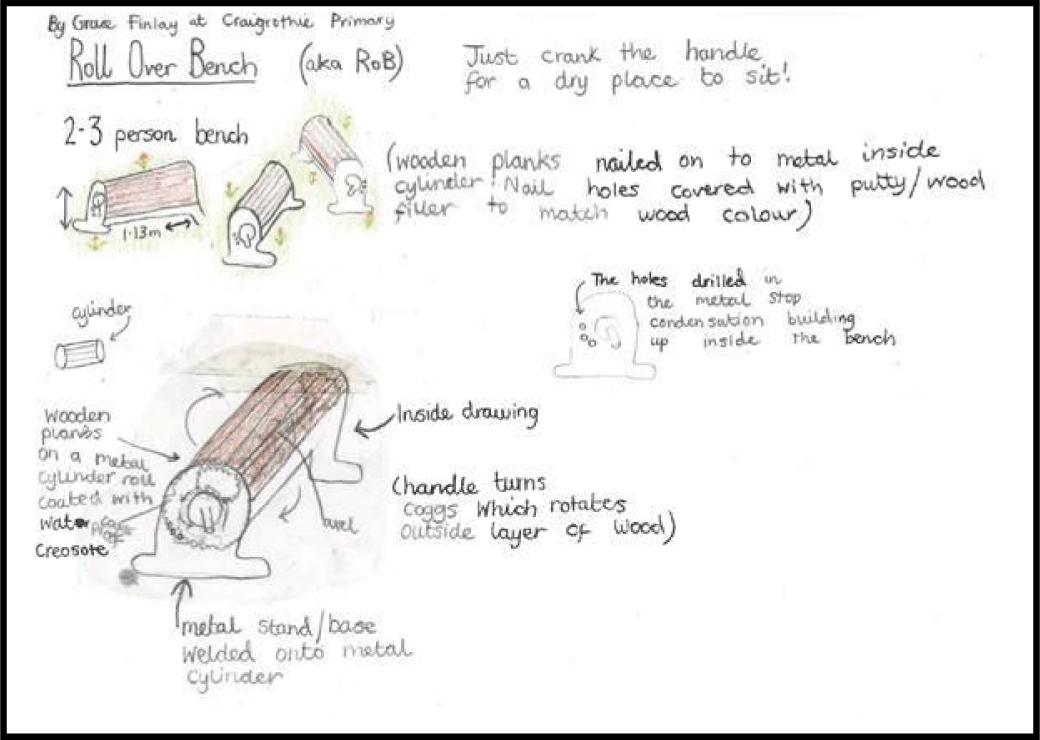 By Grace Finlay at Craigrothie Primary
Roll Over Bench (aka RoB)
Just crank the handle
for a dry place to sit!
2-3 person bench
1.13m
(wooden planks nailed on to metal inside
cylinder! Nail holes covered with putty/wood
filler to match wood colour)
The holes drilled in
the metal stop
condensation building
up inside the bench
cylinder
Inside drawing
wooden
planks
on a metal
cylinder roll
coated with
water
Creosote
(handle turns
coggs which rotates
outside layer of wood)
axel
metal stand/base
welded onto metal
cylinder